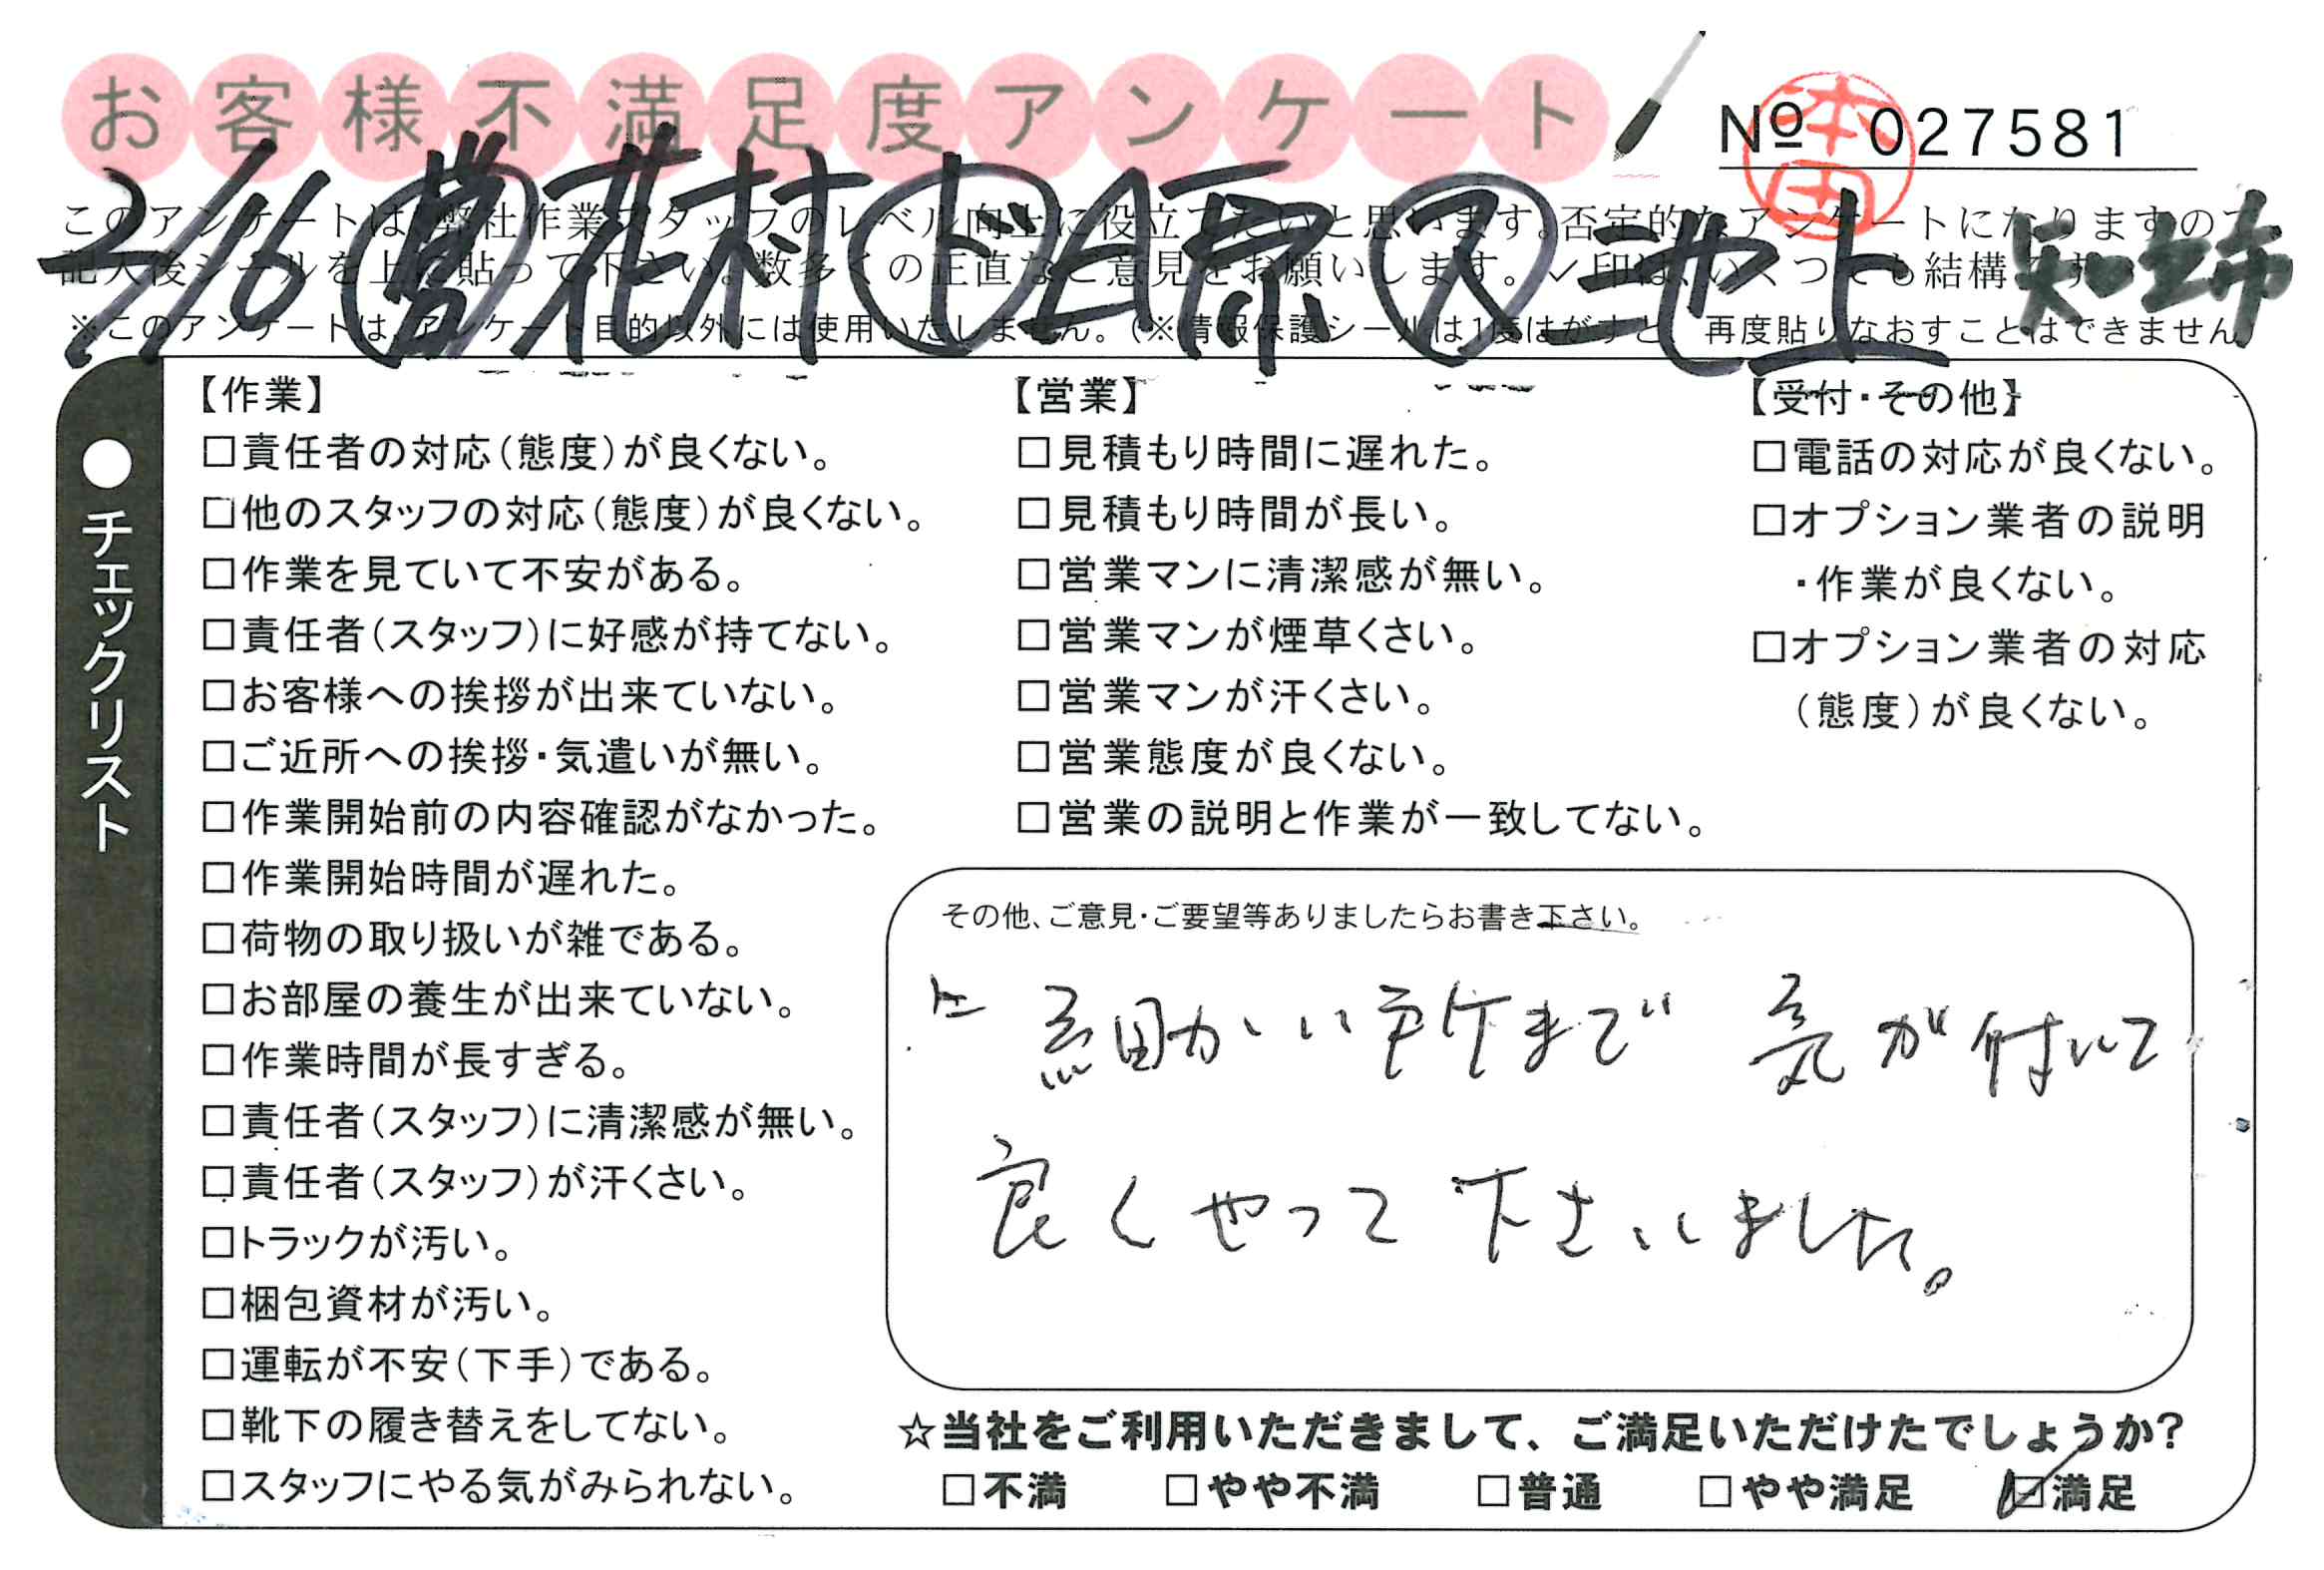 お客様不満足度アンケート
№ 027581
本田
2/16 営 花村 ド 日原 ス 池上
このアンケートは、弊社作業スタッフのレベル向上に役立てたいと思います。否定的なアンケートになりますので
記入後シールを上に貼って下さい。数多くの正直なご意見をお願いします。✓印は、いくつでも結構です。
※このアンケートは、アンケート目的以外には使用いたしません。(※情報保護シールは1度はがすと、再度貼りなおすことはできません)
●チェックリスト
【作業】
□責任者の対応(態度)が良くない。
□他のスタッフの対応(態度)が良くない。
□作業を見ていて不安がある。
□責任者(スタッフ)に好感が持てない。
□お客様への挨拶が出来ていない。
□ご近所への挨拶・気遣いが無い。
□作業開始前の内容確認がなかった。
□作業開始時間が遅れた。
□荷物の取り扱いが雑である。
□お部屋の養生が出来ていない。
□作業時間が長すぎる。
□責任者(スタッフ)に清潔感が無い。
□責任者(スタッフ)が汗くさい。
□トラックが汚い。
□梱包資材が汚い。
□運転が不安(下手)である。
□靴下の履き替えをしてない。
□スタッフにやる気がみられない。
【営業】
□見積もり時間に遅れた。
□見積もり時間が長い。
□営業マンに清潔感が無い。
□営業マンが煙草くさい。
□営業マンが汗くさい。
□営業態度が良くない。
□営業の説明と作業が一致してない。
【受付・その他】
□電話の対応が良くない。
□オプション業者の説明
・作業が良くない。
□オプション業者の対応
(態度)が良くない。
その他、ご意見・ご要望等ありましたらお書き下さい。
細かい所まで 気が付いて
良くやって下さいました。
☆当社をご利用いただきまして、ご満足いただけたでしょうか?
□不満 □やや不満 □普通 □やや満足 ☑満足